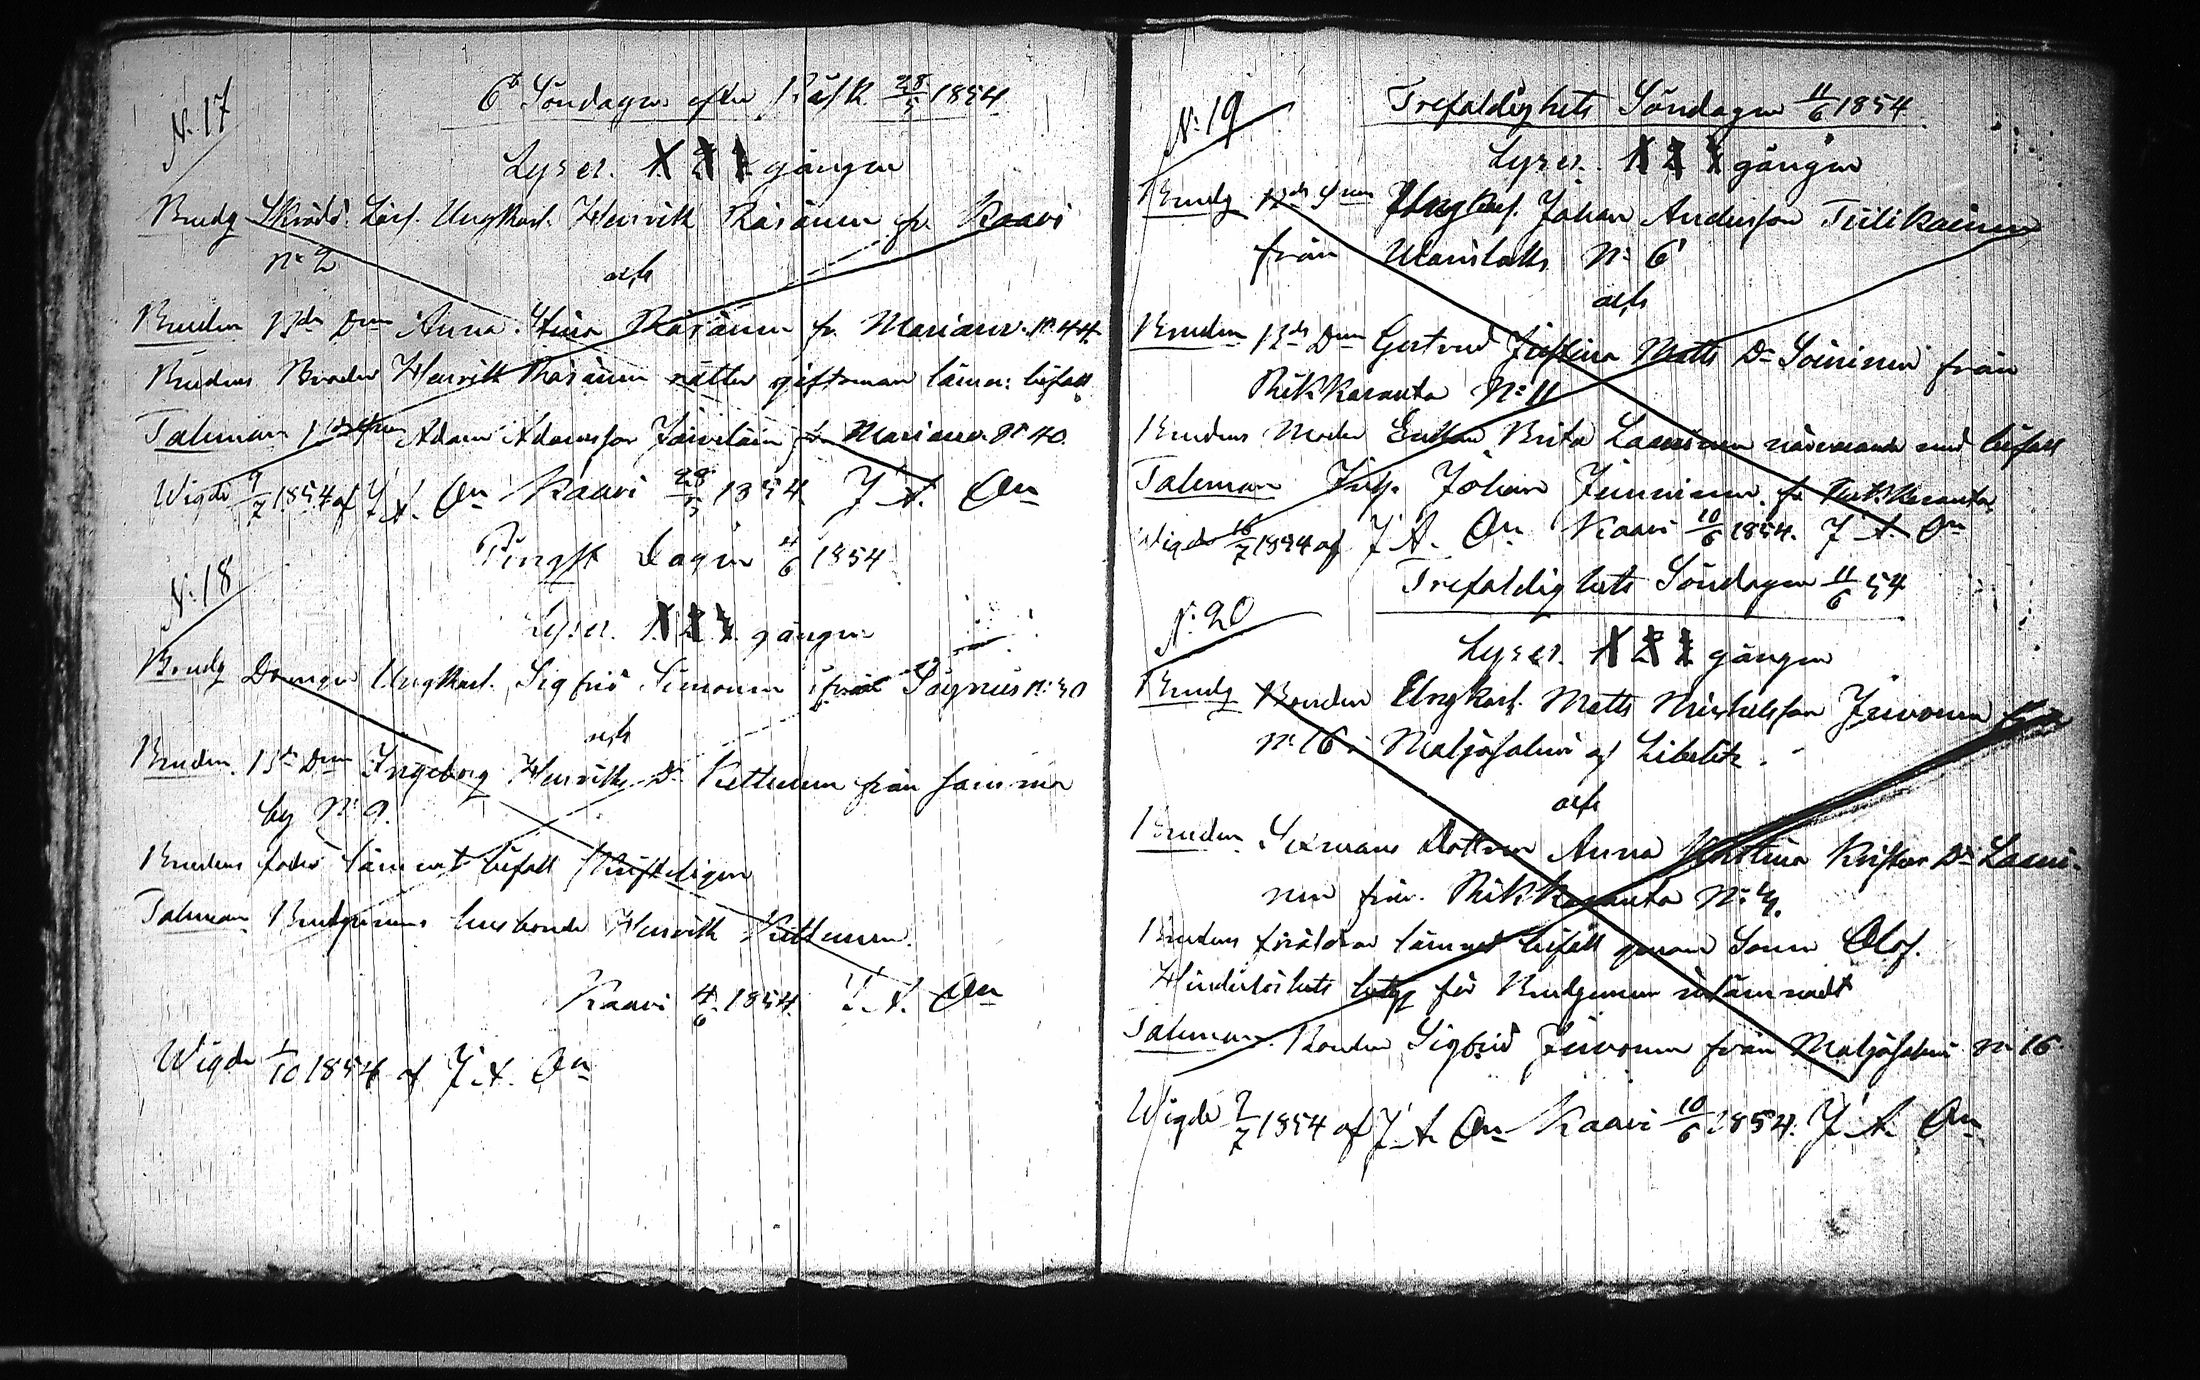 N:17
6te Söndagen efter Påsk 28/5 1854
Lyses. 1 2 3 gången
Brudg Skrädd. Lärl. Ungkarl. Henrik Räsänen fr. Kaavi
No 2
och
Bruden Bde Drn Anna Stina Räsänen fr. Mariavr. No 44
Brudens Broder Henrik Räsänen rätter giftoman lämn: bifall
Talman Adam Adamsson fr Mariavr No 40.
Wigde 9/7 1854 af J. A. On Kaavi 28/5 1854 J A. On
N:18
Pingst Dagen 4/6 1854
Lyses. 1 2 3 gången
Brudg Drengen Ungkarl. Sigfrid Simonen ifrån No 30
och
Bruden. Bde Drn Ingeborg Henriks Dr från samma
by No 9.
Brudens fader lämnat bifall skrifteligen
Talman Brudgummens husbonde Henrik
Kaavi 4/6 1854 J. A. On
Wigde 1/10 1854 af J. A. On
N:19
Trefaldighets Söndagen 11/6 1854
Lyses. 1 2 3 gången
Brudg Bde Sonen Ungkarl. Johan Andersson Tiilikainen
från No 6
och
Bruden Bde Drn Gertrud Justina Matts Dr Soininen från
Rikkaranta No 11
Brudens Moder Enkan Brita Laaninen närvarande med bifall
Talman Johan fr Rikkaranta
Wigde 16/7 1854 af J A. On Kaavi 10/6 1854. J A. On
Trefaldighets Söndagen 11/6 54
N:20
Lyses. 1 2 3 gången
Brudg Bonden Ungkarl. Matts Michelsson Juvonen från
No 16 i Maljasalmi af Libelits.
och
Bruden Sexmans Dottren Anna Kristina Krister Dr Laani-
nen från. Rikkaranta No 4.
Brudens föräldrar lämnat bifall genom Sonen Olof.
Hinderlöshets betyg för Brudgummen inlämnadt
Talman. Bonden Sigfrid Juvonen från Maljasalmi No 16
Wigde 2/7 1854 af J A. On Kaavi 10/6 1854. J A. On